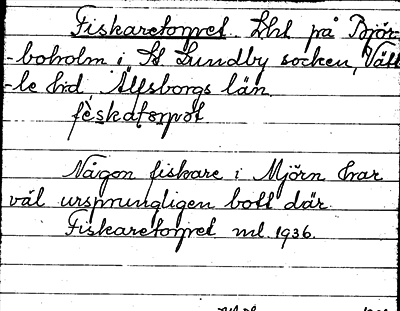 Fiskaretorpet. Lht på Björ-
-boholm i St Lundby socken, Vätt-
-le hd Älfsborgs län.
Någon fiskare i Mjörn har
väl ursprungligen bott där.
Fiskaretorpet ml. 1936.